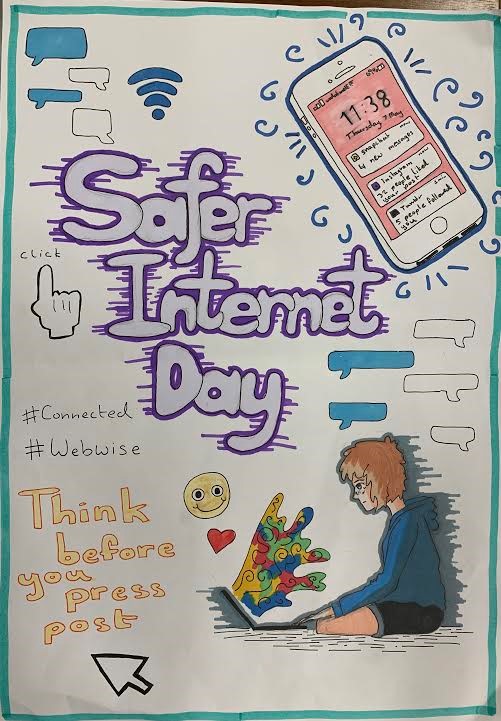 11:38
Thursday 7 May
Snapchat
4 new mesages
Instagram
22 people liked
your post
Tumblr
5 people followed
you
Safer
Internet
Day
click
#Connected
#Webwise
Think
before
you
press
post